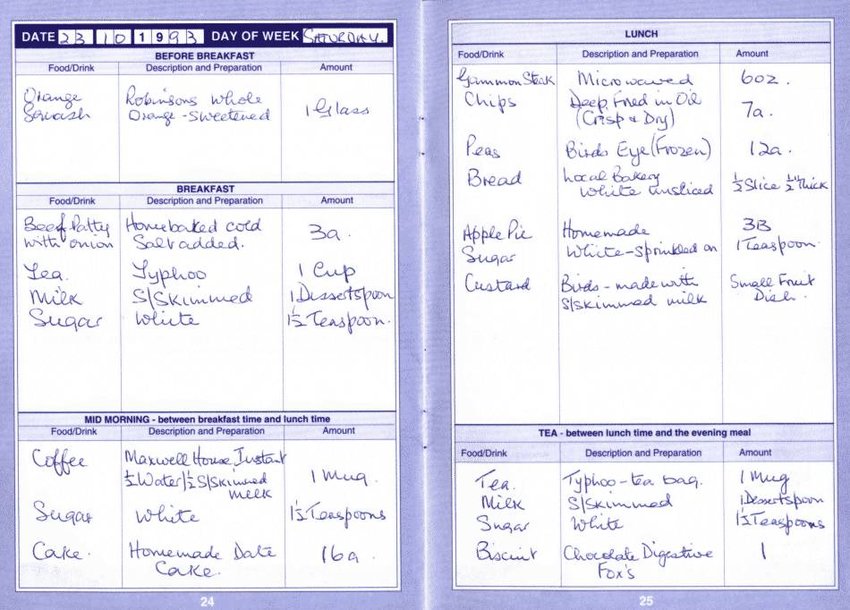 DATE 23 10 1993 DAY OF WEEK SATURDAY.
BEFORE BREAKFAST
Food/Drink Description and Preparation Amount
Orange Robinsons Whole
Squash Orange - Sweetened 1 Glass
BREAKFAST
Food/Drink Description and Preparation Amount
Beef Patty Homebaked cold 3a.
with onion Salt added.
Tea. Typhoo 1 Cup
Milk S/Skimmed 1 Dessertspoon
Sugar White 1½ Teaspoon.
MID MORNING - between breakfast time and lunch time
Food/Drink Description and Preparation Amount
Coffee Maxwell House Instant
½ Water/½ S/Skimmed 1 Mug.
milk
Sugar White 1½ Teaspoons
Cake. Homemade Date 16a.
Cake.
24
LUNCH
Food/Drink Description and Preparation Amount
Gammon Steak Microwaved 6oz.
Chips Deep Fried in Oil 7a.
(Crisp & Dry)
Peas Birds Eye (Frozen) 12a.
Bread Local Bakery
White unsliced ½ Slice ½" Thick
Apple Pie Homemade 3B
Sugar White - Sprinkled on 1 Teaspoon.
Custard Birds - made with Small Fruit
S/Skimmed milk Dish.
TEA - between lunch time and the evening meal
Food/Drink Description and Preparation Amount
Tea. Typhoo - tea bag. 1 Mug
Milk S/Skimmed 1 Dessertspoon
Sugar White 1½ Teaspoons
Biscuit Chocolate Digestive 1
Fox's
25